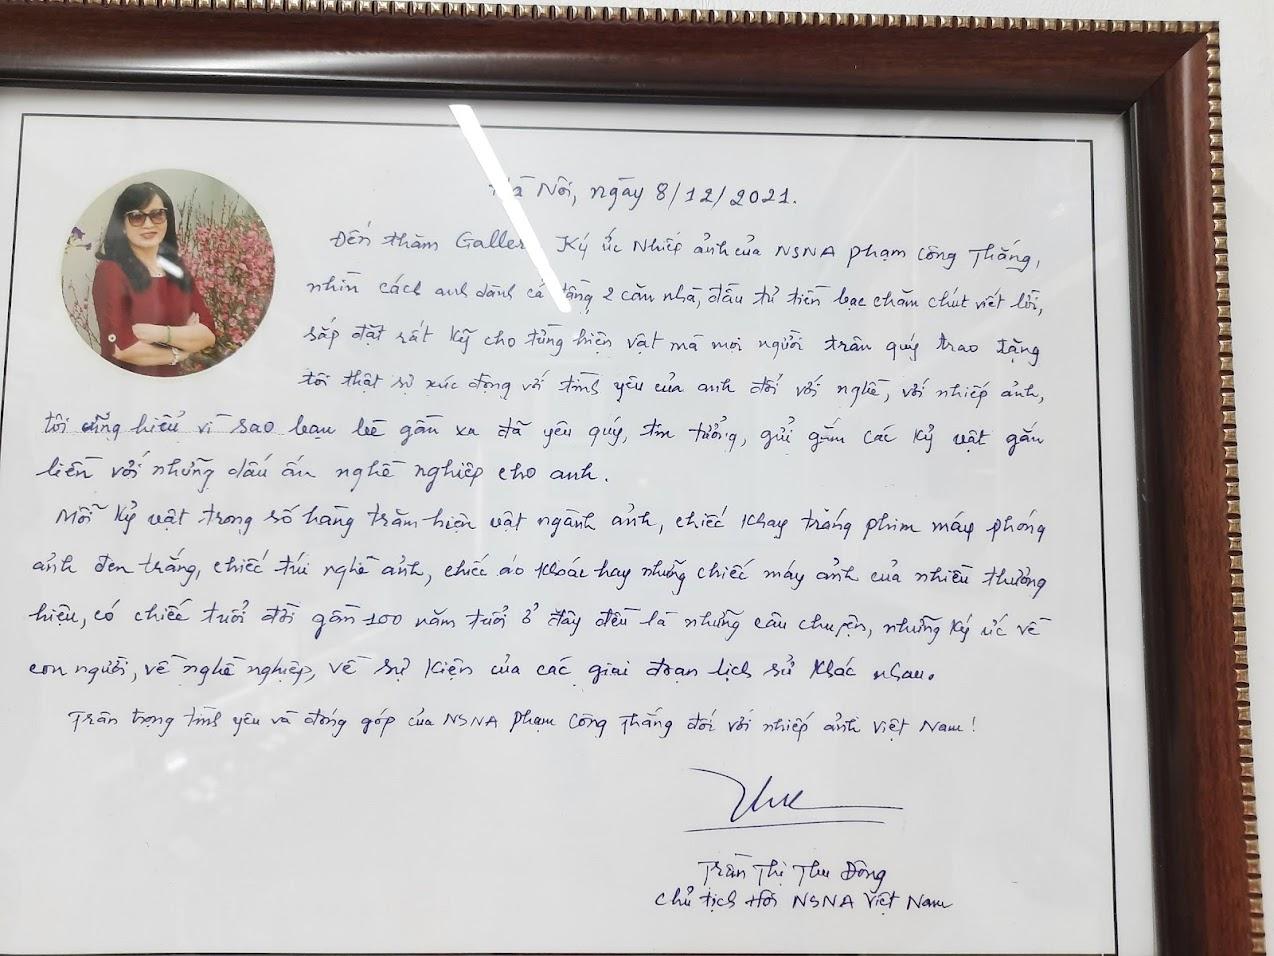 Hà Nội, ngày 8/12/2021.
Đến thăm Gallery Ký ức Nhiếp ảnh của NSNA Phạm Công Thắng,
nhìn cách anh dành cả tầng 2 căn nhà, đầu tư tiền bạc chăm chút viết lời,
sắp đặt rất kỹ cho từng hiện vật mà mọi người trân quý trao tặng
tôi thật sự xúc động với tình yêu của anh đối với nghề, với nhiếp ảnh,
tôi cũng hiểu vì sao bạn bè gần xa đã yêu quý, tin tưởng, gửi gắm các kỷ vật gắn
liền với những dấu ấn nghề nghiệp cho anh.
Mỗi kỷ vật trong số hàng trăm hiện vật ngành ảnh, chiếc khay tráng phim máy phóng
ảnh đen trắng, chiếc túi nghề ảnh, chiếc áo khoác hay những chiếc máy ảnh của nhiều thương
hiệu, có chiếc tuổi đời gần 100 năm tuổi ở đây đều là những câu chuyện, những ký ức về
con người, về nghề nghiệp, về sự kiện của các giai đoạn lịch sử khác nhau.
Trân trọng tình yêu và đóng góp của NSNA Phạm Công Thắng đối với nhiếp ảnh Việt Nam!
Trần Thị Thu Đông
Chủ tịch Hội NSNA Việt Nam